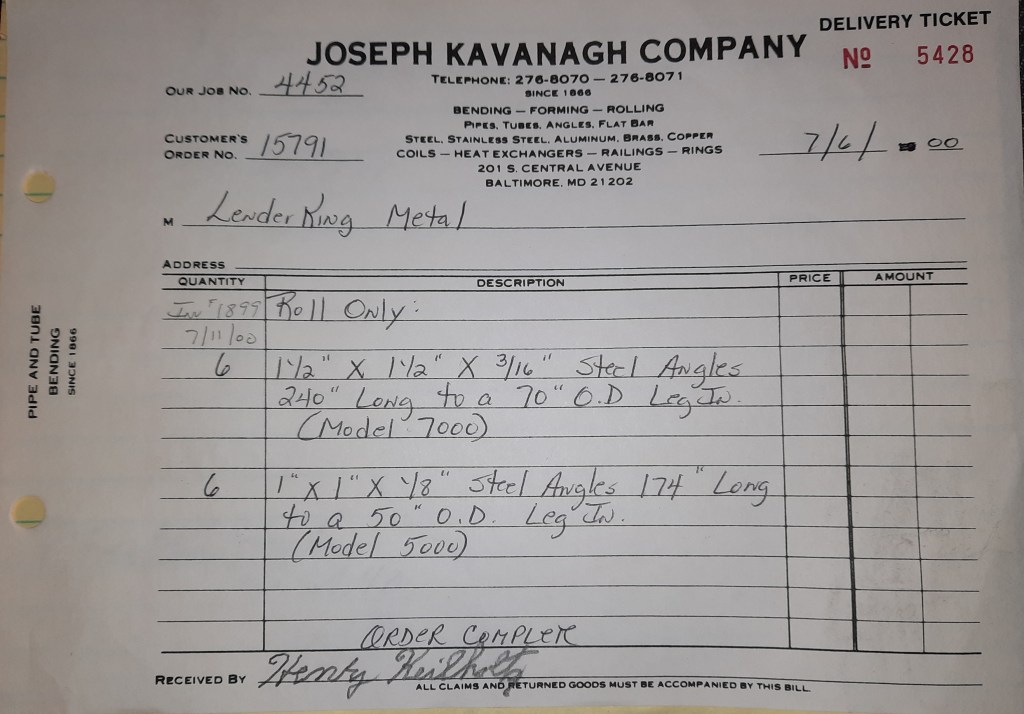 DELIVERY TICKET
JOSEPH KAVANAGH COMPANY
Nº 5428
TELEPHONE: 276-8070 — 276-8071
SINCE 1866
OUR JOB NO. 4452
BENDING — FORMING — ROLLING
PIPES, TUBES, ANGLES, FLAT BAR
CUSTOMER'S ORDER NO. 15791
STEEL, STAINLESS STEEL, ALUMINUM, BRASS, COPPER
COILS — HEAT EXCHANGERS — RAILINGS — RINGS
7/6/ 00
201 S. CENTRAL AVENUE
BALTIMORE, MD 21202
M LenderKing Metal
ADDRESS
QUANTITY DESCRIPTION PRICE AMOUNT
Inv #1899 Roll Only:
7/11/00
6 1 1/2" X 1 1/2" X 3/16" Steel Angles
240" Long to a 70" O.D Leg In.
(Model 7000)
6 1" X 1" X 1/8" Steel Angles 174" Long
to a 50" O.D. Leg In.
(Model 5000)
ORDER COMPLETE
RECEIVED BY Henry Keilholtz
ALL CLAIMS AND RETURNED GOODS MUST BE ACCOMPANIED BY THIS BILL
PIPE AND TUBE
BENDING
SINCE 1866